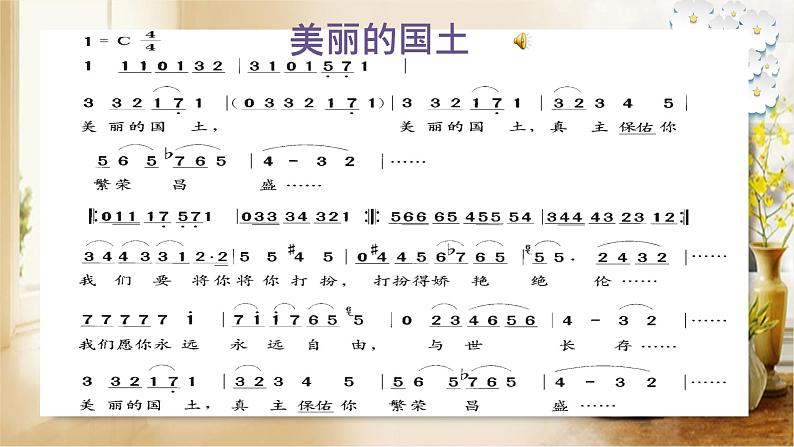 美丽的国土
1 = C 4/4
1 1 1 0 1 3 2 | 3 1 0 1 5 7 1 |
3 3 2 1 7 1 | ( 0 3 3 2 1 7 1 ) | 3 3 2 1 7 1 | 3 2 3 4 5 |
美 丽的国 土， 美 丽的国 土，真 主 保佑 你
5 6 5 ♭7 6 5 | 4 - 3 2 | ……
繁荣 昌 盛 ……
‖: 0 1 1 1 1 7 5 7 1 | 0 3 3 3 4 3 2 1 :‖: 5 6 5 6 6 5 4 5 5 5 4 | 3 4 4 4 3 2 3 1 2 :‖
3 4 4 3 3 1 2·2 | 5 5 #4 5 | 0 #4 5 4 5 6 ♭7 6 5 | 5 5 . 2 3 4 3 2 | ……
我 们 要 将你 将你 打 扮， 打扮得娇 艳 绝 伦 ……
7 7 7 7 7 1 | 7 1 1 7 6 5 5 | 0 2 3 4 6 5 6 | 4 - 3 2 | ……
我们愿你永 远 永 远 自 由， 与 世 长 存 ……
3 3 2 1 7 1 | 3 2 3 4 5 | 5 6 5 ♭7 6 5 | 4 - 3 2 | ……
美 丽的国 土，真 主 保佑 你 繁荣 昌 盛 ……